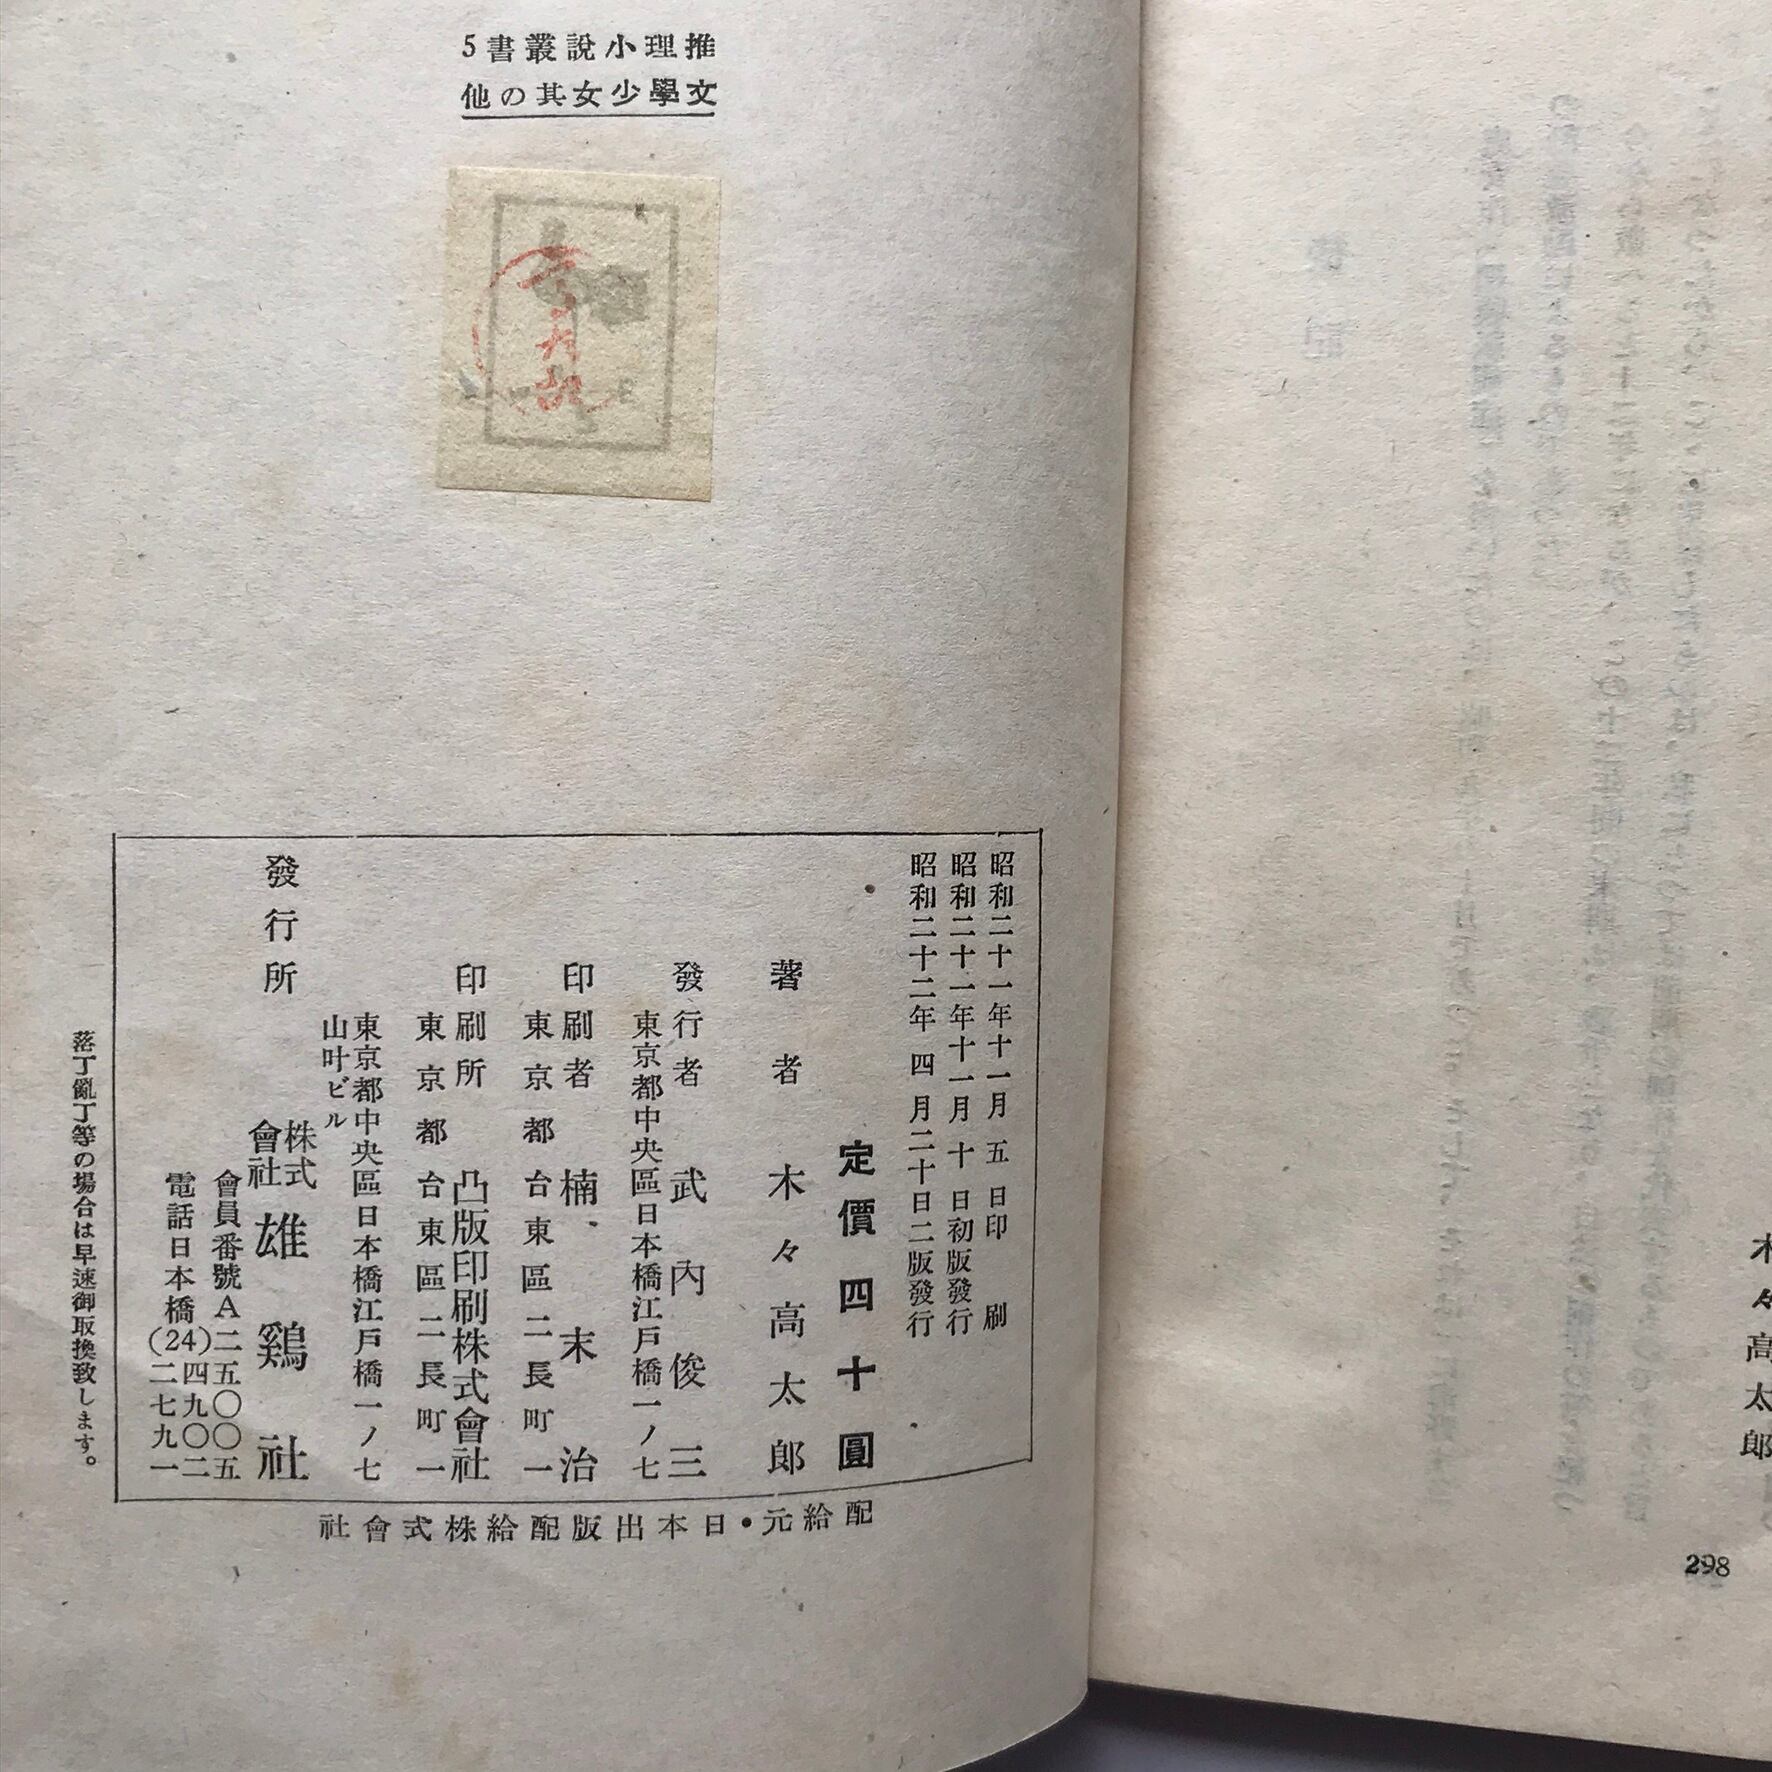 推理小說叢書5
文學少女其の他
昭和二十一年十一月五日印刷
昭和二十一年十一月十日初版發行
昭和二十二年四月二十日二版發行
定價四十圓
著者 木々高太郎
發行者 武內俊三
東京都中央區日本橋江戸橋一ノ七
印刷者 楠末治
東京都台東區二長町一
印刷所 凸版印刷株式會社
東京都台東區二長町一
東京都中央區日本橋江戸橋一ノ七
山叶ビル
發行所 株式會社 雄鷄社
會員番號A二五〇〇五
電話日本橋(24)四九〇二
二七九一
配給元・日本出版配給株式會社
落丁亂丁等の場合は早速御取換致します。
木々高太郎
298